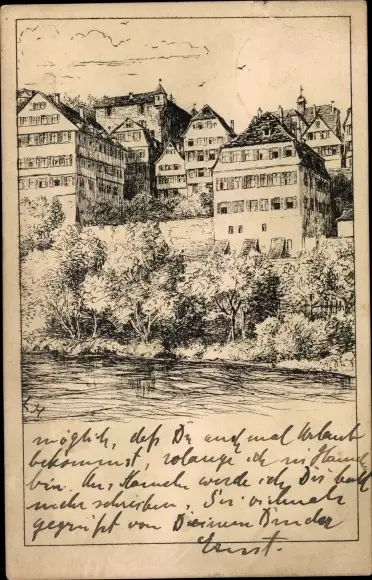 möglich, daß Du auch mal Urlaub
bekommst, solange ich in
bin. werde ich Dir bald
mehr schreiben. Sei vielmals
gegrüßt von Deinem Bruder
Ernst.